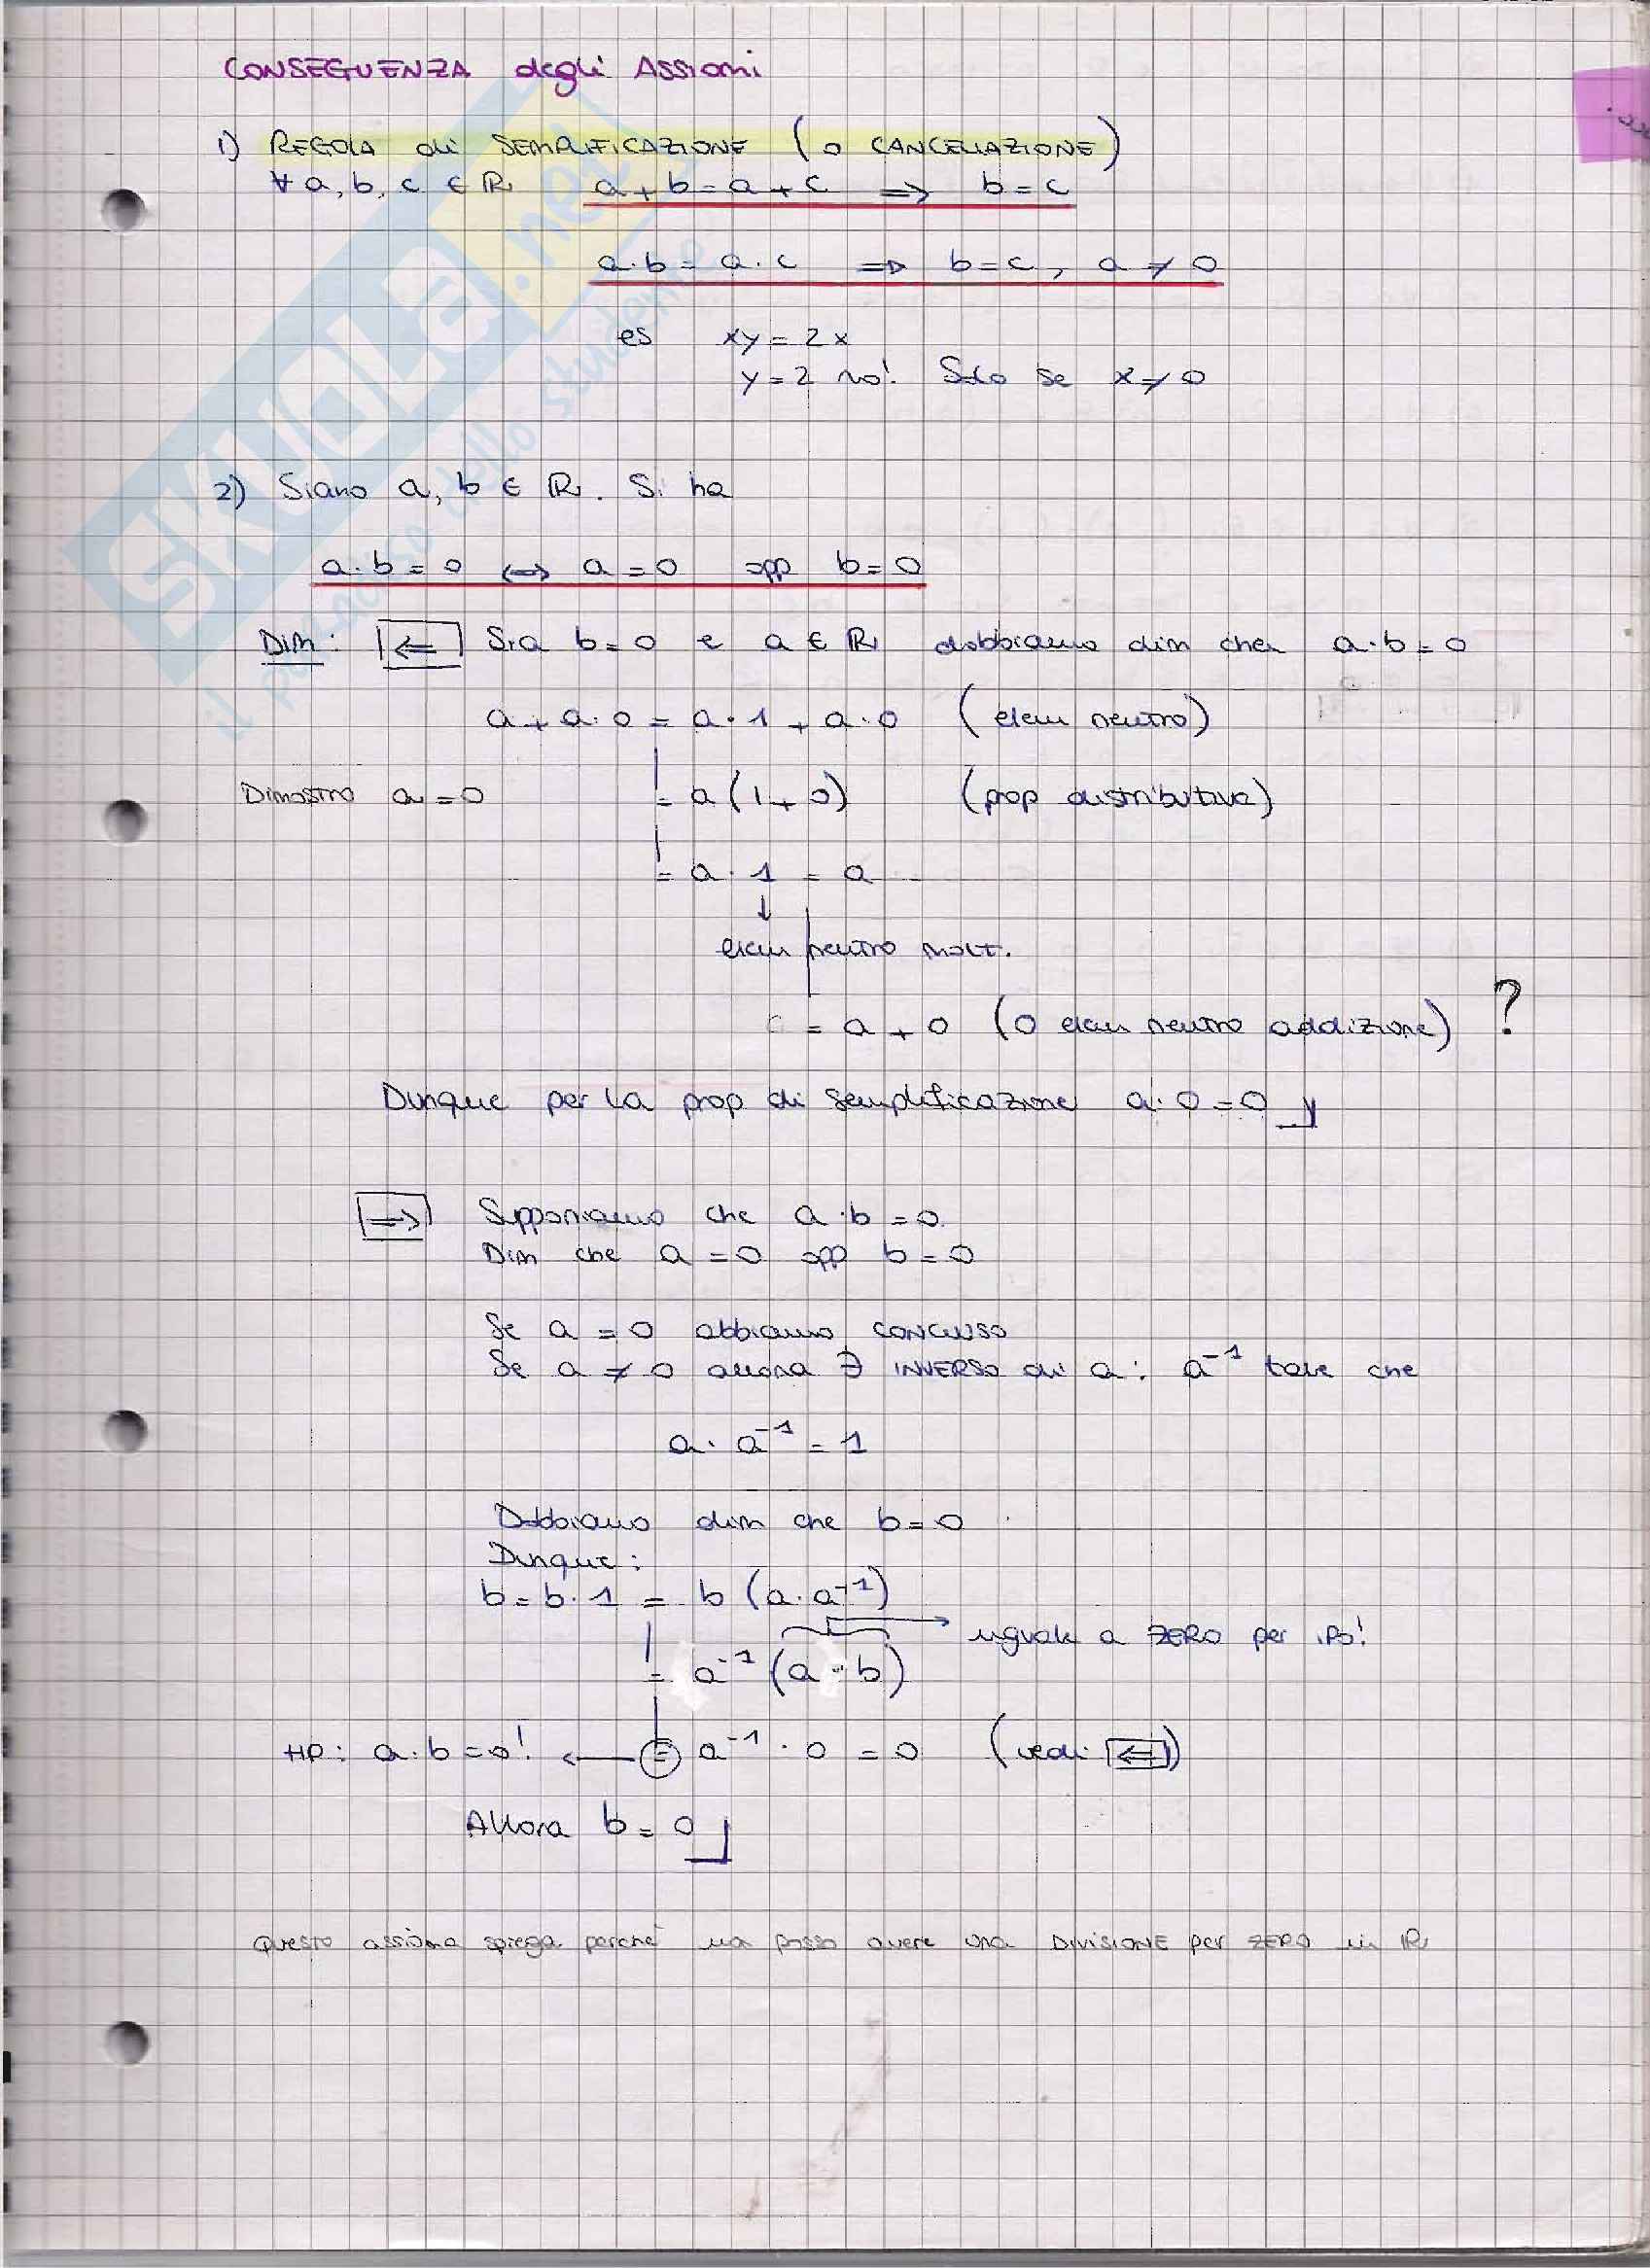 CONSEGUENZA degli ASSIOMI
1) REGOLA di SEMPLIFICAZIONE (o CANCELLAZIONE)
∀ a, b, c ∈ ℝ a+b=a+c ⟹ b=c
a·b=a·c ⟹ b=c, a≠0
es xy=2x
y=2 no! Solo se x≠0
2) Siano a, b ∈ ℝ. Si ha
a·b=0 ⟺ a=0 opp b=0
Dim: ⟸ Sia b=0 e a ∈ ℝ dobbiamo dim che a·b=0
a+a·0=a·1+a·0 (elem neutro)
Dimostro a=0 =a(1+0) (prop distributiva)
=a·1=a
↓
elem neutro molt.
=a+0 (0 elem neutro addizione) ?
Dunque per la prop di semplificazione a·0=0
⟹ Supponiamo che a·b=0
Dim che a=0 opp b=0
Se a=0 abbiamo concluso
Se a≠0 allora ∃ INVERSO di a: a⁻¹ tale che
a·a⁻¹=1
Dobbiamo dim che b=0
Dunque:
b=b·1=b(a·a⁻¹)
uguale a ZERO per ipo!
=a⁻¹(a·b)
HP: a·b=0! ← = a⁻¹·0=0 (vedi ⟸)
Allora b=0
Questo assioma spiega perché non posso avere una DIVISIONE per ZERO in ℝ
SKUOLA.net
il paradiso dello studente